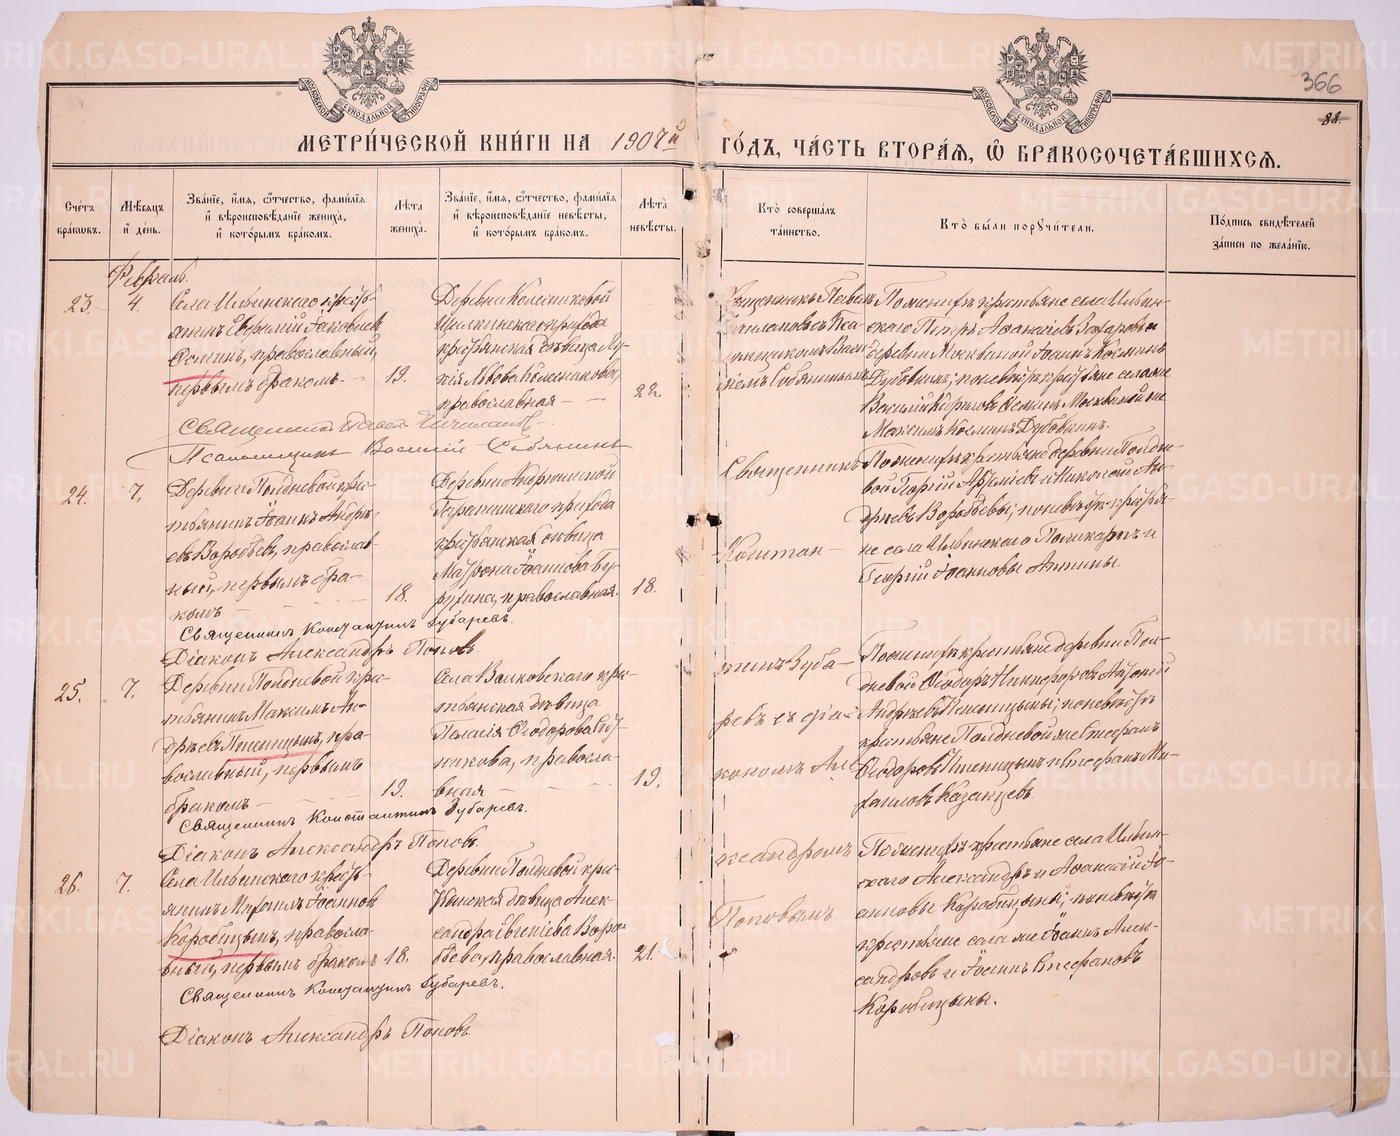 МОСКОВСКОЙ СѴНОДАЛЬНОЙ ТИПОГРАФІИ
МОСКОВСКОЙ СѴНОДАЛЬНОЙ ТИПОГРАФІИ
366
88.
МЕТРИ́ЧЕСКОЙ КНИ́ГИ НА 1907й ГО́ДЪ, ЧА́СТЬ ВТОРА́Я, Ѽ БРАКОСОЧЕТА́ВШИХСЯ.
Счетъ бра́ковъ.
Мѣсяцъ и де́нь.
Зва́ніе, и́мя, ѻ҆́тчество, фами́лія и вѣроисповѣ́даніе жениха̀, и кото́рымъ бра́комъ.
Лѣ́та жениха̀.
Зва́ніе, и́мя, ѻ҆́тчество, фами́лія и вѣроисповѣ́даніе невѣ́сты, и кото́рымъ бра́комъ.
Лѣ́та невѣ́сты.
Кто̀ соверша́лъ та́инство.
Кто̀ бы́ли порꙋчи́тели.
По́дпись свидѣ́телей за́писи по жела́нію.
Февраль.
23.
4.
Села Ильинскаго кресть-
янинъ Евфимій Іаковлевъ
Ѳоминъ, православный,
первымъ бракомъ.
19.
Деревни Колесниковой
прихода
крестьянская дѣвица Лу-
кія Львова Колесникова,
православная
22.
Священникъ Павелъ
съ Пса-
ломщикомъ Васи-
ліемъ Собянинымъ
По женихѣ крестьяне села Ильин-
скаго Петръ Аѳанасіевъ Захаровъ и
деревни Москвиной Іоаннъ Косминъ
Дубовкинъ; по невѣстѣ крестьяне села же
Василій Ѳоминъ и Москвиной же
Максимъ Космин Дубовкинъ.
Священникъ Павелъ
Псаломщикъ Василій Собянинъ
24.
7.
Деревни Полдневой кре-
стьянинъ Іоаннъ Андре-
евъ Воробьевъ, православ-
ный, первымъ бра-
комъ
18.
Деревни
прихода
крестьянская дѣвица
Матрона Іоаннова Бу-
рухина, православная.
18.
Священникъ
Констан-
тинъ Зуба-
ревъ съ діа-
кономъ Але-
ксандромъ
Поповымъ.
По женихѣ крестьяне деревни Полдне-
вой Георгій Артеміевъ и Николай Ан-
дреевъ Воробьевы; по невѣстѣ крестья-
не села Ильинскаго Поликарпъ и
Георгій Іоанновы Аптины.
Священникъ Константинъ Зубаревъ.
Діаконъ Александръ Поповъ.
25.
7.
Деревни Полдневой кре-
стьянинъ Максимъ Ан-
дреевъ Пшеницынъ, пра-
вославный, первымъ
бракомъ
19.
Села Волковскаго кре-
стьянская дѣвица
Пелагія Ѳеодорова
православ-
ная
19.
По женихѣ крестьяне деревни Пол-
дневой Ѳеодоръ Никифоровъ Антоній
Андреевъ Пшеницыны; по невѣстѣ
крестьяне Полдневой же Стефанъ
Ѳеодоровъ Пшеницынъ и Стефанъ Ми-
хаиловъ Казанцевъ.
Священникъ Константинъ Зубаревъ.
Діаконъ Александръ Поповъ.
26.
7.
Села Ильинскаго кресть-
янинъ Михаилъ Іоанновъ
Коробицынъ, правосла-
вный, первымъ бракомъ
18.
Деревни Полдневой кре-
стьянская дѣвица Алек-
сандра Евгеніева Воро-
бьева, православная.
21.
По женихѣ крестьяне села Ильин-
скаго Александръ и Аѳанасій Іо-
анновы Коробицыны; по невѣстѣ
крестьяне села же Іоаннъ Алек-
сандровъ и Іоаннъ Стефановъ
Коробицыны.
Священникъ Константинъ Зубаревъ.
Діаконъ Александръ Поповъ.
METRIKI.GASO-URAL.RU